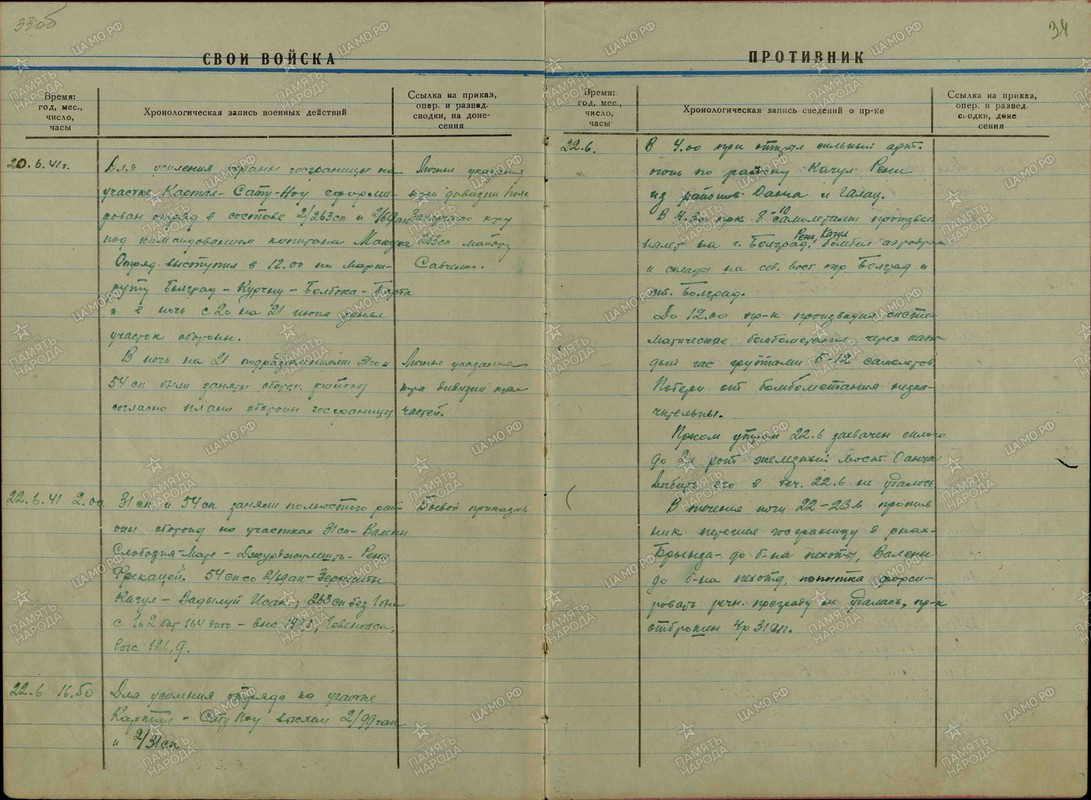 33об
СВОИ ВОЙСКА
Время:
год, мес.,
число,
часы
Хронологическая запись военных действий
Ссылка на приказ,
опер. и развед.
сводки, на доне-
сения
20.6.41г.
Для усиления охраны госграницы на
участке Картал - Сату-Ноу сформи-
рован отряд в составе 2/263сп и
под командованием капитана
Отряд выступил в 12.00 по марш-
руту Болград - Курчи -
и в ночь с 20 на 21 июня занял
участок обороны.
В ночь на 21 подразделениями 31 сп и
54 сп были заняты оборон. районы
согласно плана обороны госграницы
Личные указания
к-ра дивизии
263сп майору
Савченко.
Личные указания
к-ра дивизии к-рам
частей.
22.6.41 2.00
31 сп и 54 сп заняли полностью рай-
оны обороны на участках 31сп -
Слободзия-Маре - Джурджулешть - Рени
54 сп со
Кагул - Вадылуй Исак, 263 сп без
с 1 и 2 164
выс 196,9.
Боевой приказ
22.6 16.50
Для усиления отряда на участке
Картал - Сату Ноу выслан 2/99гап
и 2/31сп
34
ПРОТИВНИК
Время:
год, мес.,
число,
часы
Хронологическая запись сведений о пр-ке
Ссылка на приказ,
опер. и развед.
сводки, доне
сения
22.6.
В 4.00 пр-к открыл сильный арт.
огонь по району Кагул Рени
из районов Оанча и Галац.
В 4.30 пр-к 8-10 самолетами произвел
налет на г. Болград, Рени, Кагул бомбил аэродром
и склады на сев. вост окр Болград и
ст. Болград.
До 12.00 пр-к производил систе-
матические бомбометания через каж-
дый час группами 6-12 самолетов.
Потери от бомбометания незна-
чительны.
Пр-ком утром 22.6 захвачен силою
до 2х рот железный мост Оанча
выбить его в теч. 22.6 не удалось
В течение ночи 22-23.6 против
ник перешел госграницу в р-нах-
Брынза - до б-на пехоты, Валены
до б-на пехоты, попытка форси-
ровать речн. преграду не удалась, пр-к
отброшен
ПАМЯТЬ НАРОДА
ЦАМО.РФ